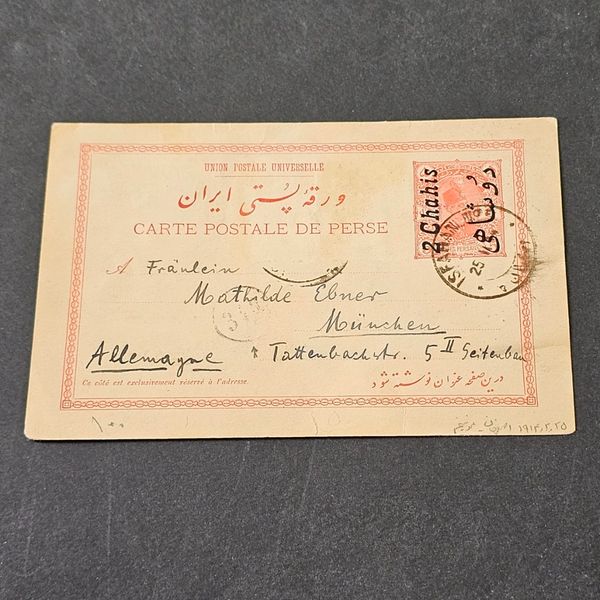 UNION POSTALE UNIVERSELLE
ورقهٔ پُستی ایران
CARTE POSTALE DE PERSE
2 Chahis
دوشاهی
ISFAHAN
25
A Fräulein
Mathilde Ebner
München
Allemagne Tattenbachstr. 5 II Seitenbau
Ce côté est exclusivement réservé à l'adresse.
درین صفحه عنوان نوشته شود
۱۰۰